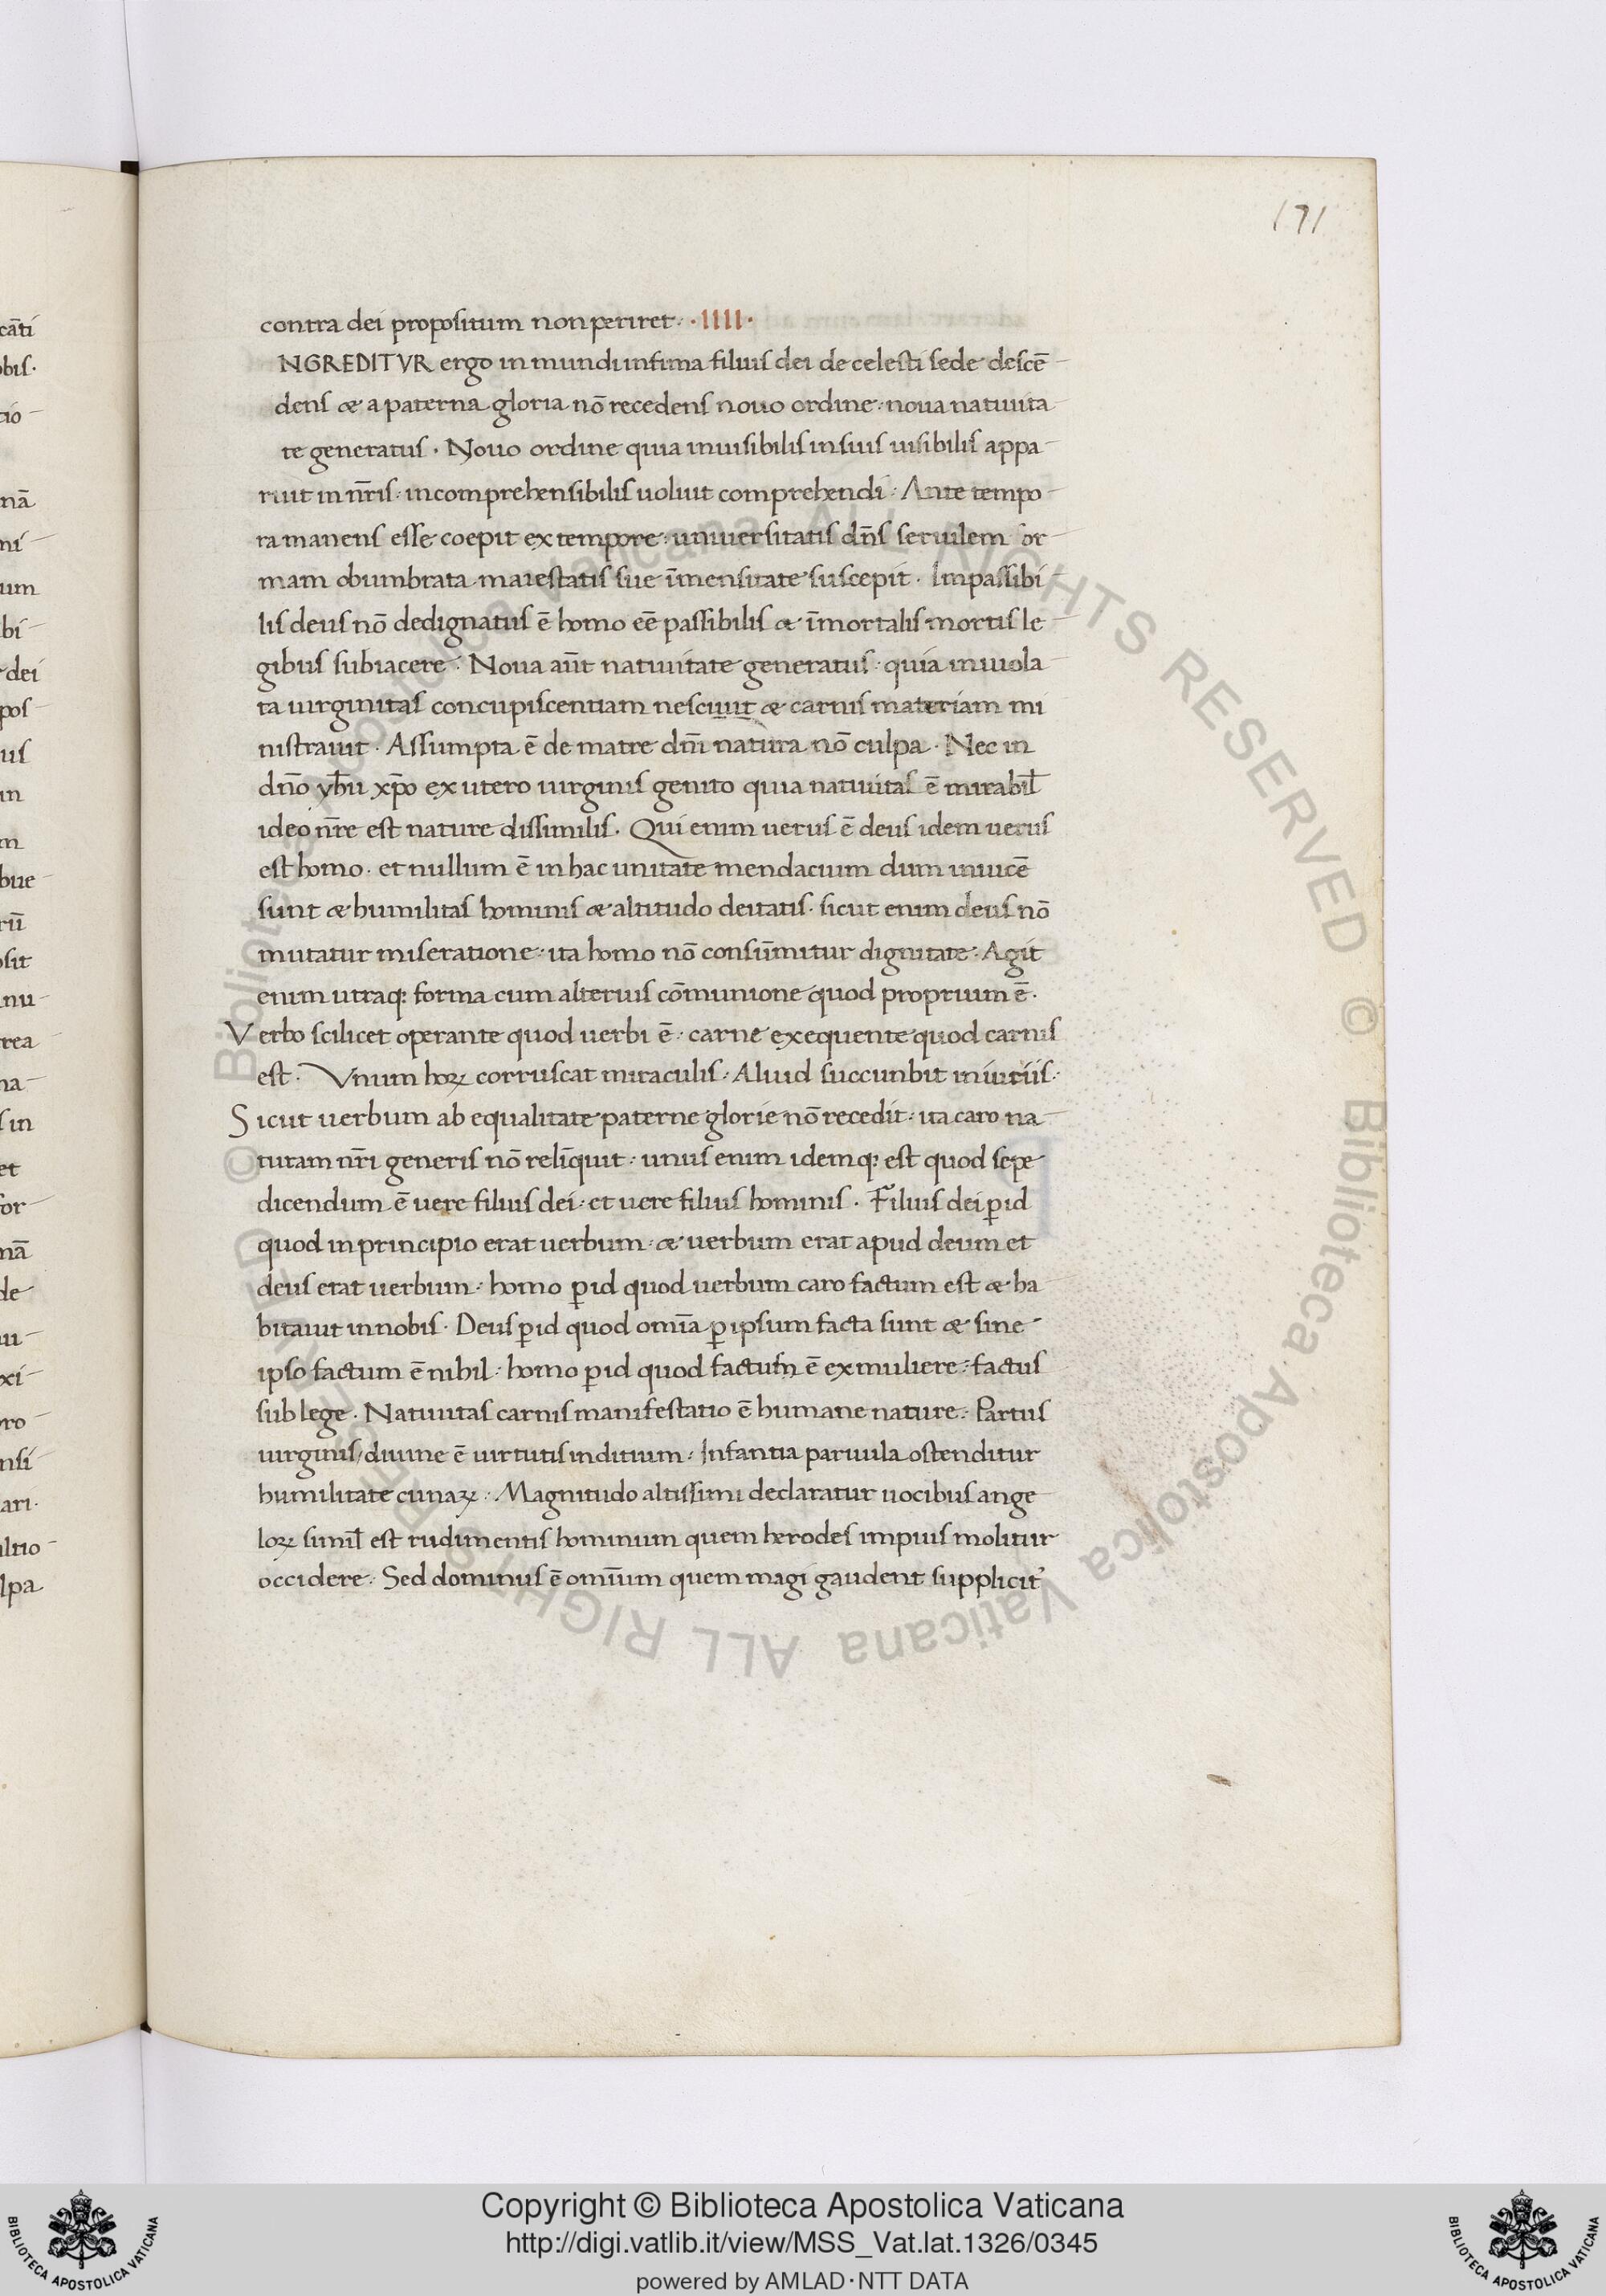 171
contra dei propositum non periret · IIII ·
NGREDITVR ergo in mundi infima filius dei de celesti sede descē
dens & a paterna gloria nō recedens nouo ordine · noua natiuita
te generatus · Nouo ordine quia inuisibilis in suis uisibilis appa
ruit in nr̄is · incomprehensibilis uoluit comprehendi · Ante tempo
ra manens esse coepit ex tempore · uniuersitatis dn̄s seruilem or
mam obumbrata maiestatis sue īmensitate suscepit · Impassibi
lis deus nō dedignatus ē homo eē passibilis & īmortalis mortis le
gibus subiacere · Noua aūt natiuitate generatus · quia inuiola
ta uirginitas concupiscentiam nesciuit & carnis materiam mi
nistrauit · Assumpta ē de matre dn̄i natura nō culpa · Nec in
dn̄o yhū xp̄o ex utero uirginis genito quia natiuitas ē mirabil̄
ideo nr̄e est nature dissimilis · Qui enim uerus ē deus idem uerus
est homo · et nullum ē in hac unitate mendacium dum inuicē
sunt & humilitas hominis & altitudo deitatis · sicut enim deus nō
mutatur miseratione · ita homo nō consūmitur dignitate · Agit
enim utraq; forma cum alterius cōmunione quod proprium ē ·
Verbo scilicet operante quod uerbi ē · carne exequente quod carnis
est · Vnum hoꝝ corruscat miraculis · Aliud succunbit iniuriis ·
Sicut uerbum ab equalitate paterne glorie nō recedit · ita caro na
turam nr̄i generis nō relīquit · unus enim idemq; est quod sepe
dicendum ē uere filius dei · et uere filius hominis · Filius dei ꝑ id
quod in principio erat uerbum · & uerbum erat apud deum et
deus erat uerbum · homo ꝑ id quod uerbum caro factum est & ha
bitauit in nobis · Deus ꝑ id quod omīa ꝑ ipsum facta sunt & sine
ipso factum ē nihil · homo ꝑ id quod factum ē ex muliere · factus
sub lege · Natiuitas carnis manifestatio ē humane nature · Partus
uirginis / diuine ē uirtutis inditium · Infantia paruula ostenditur
humilitate cunaꝝ · Magnitudo altissimi declaratur uocibus ange
loꝝ simil̄ est rudimentis hominum quem herodes impius molitur
occidere · Sed dominus ē omīum quem magi gaudent supplicit᾽
cāti
obis·
tio
nā
ni
um
bi
dei
pos
us
in
m
bue
rū
osit
nu
rea
na
s in
et
for
nā
de
nu
xi
pro
nsi
ari·
ultio
lpa
© Biblioteca Apostolica Vaticana ALL RIGHTS RESERVED © Biblioteca Apostolica Vaticana ALL RIGHTS RESERVED
Copyright © Biblioteca Apostolica Vaticana
http://digi.vatlib.it/view/MSS_Vat.lat.1326/0345
powered by AMLAD·NTT DATA
BIBLIOTECA APOSTOLICA VATICANA
BIBLIOTECA APOSTOLICA VATICANA